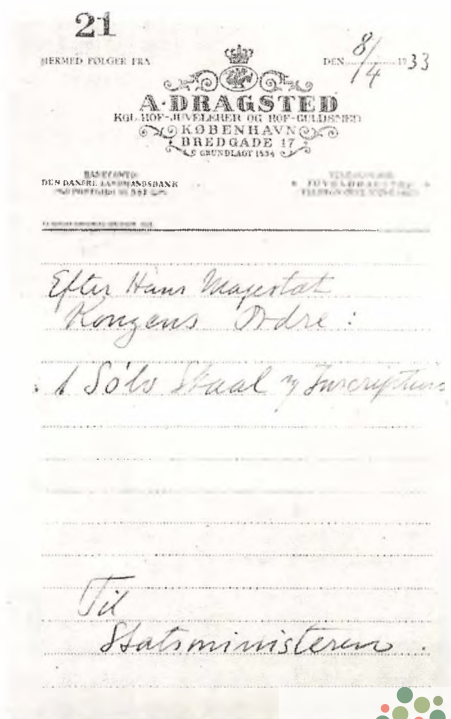 21
HERMED FØLGER FRA
DEN 8/4 1933
A. DRAGSTED
KGL. HOF-JUVELERER OG HOF-GULDSMED
KØBENHAVN
BREDGADE 17
GRUNDLAGT 1854
BANKCONTO:
DEN DANSKE LANDMANDSBANK
Efter Hans Majestæt
Kongens Ordre:
1 Sølv Skaal Inscription
Til
Statsministeren.